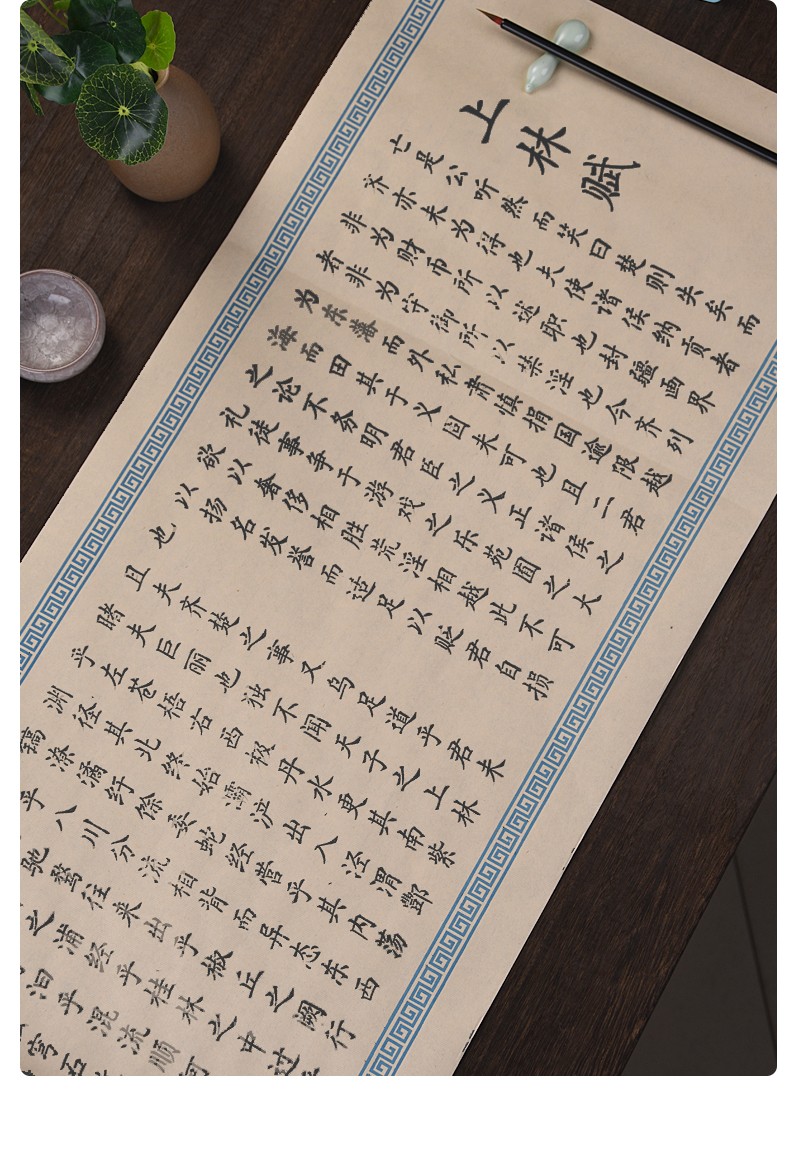 上林赋
亡是公听然而笑曰楚则失矣而
齐亦未为得也夫使诸侯纳贡者
非为财币所以述职也封疆画界
者非为守御所以禁淫也今齐列
为东藩而外私肃慎捐国逾限越
海而田其于义固未可也且二君
之论不务明君臣之义正诸侯之
礼徒事争于游戏之乐苑囿之大
欲以奢侈相胜荒淫相越此不可
以扬名发誉而适足以贬君自损
也
且夫齐楚之事又乌足道乎君未
睹夫巨丽也独不闻天子之上林
乎左苍梧右西极丹水更其南紫
渊径其北终始灞浐出入泾渭酆
镐潦潏纡馀委蛇经营乎其内荡
乎八川分流相背而异态东西
驰骛往来出乎椒丘之阙行
之浦经乎桂林之中过
汩乎混流顺阿
穹石